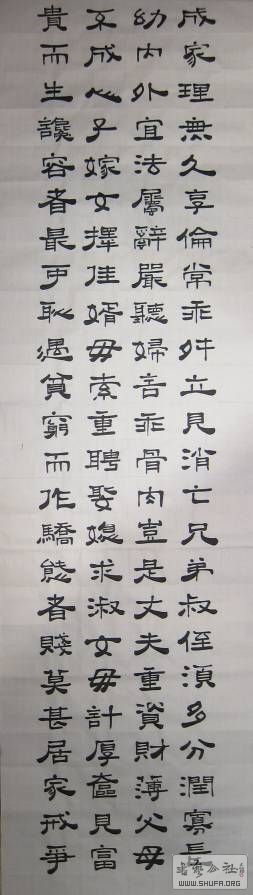 成家理無久享倫常乖舛立見消亡兄弟叔侄須多分潤寡長
幼內外宜法屬辭嚴聽婦言乖骨肉豈是丈夫重資財薄父母
不成人子嫁女擇佳婿毋索重聘娶媳求淑女毋計厚奩見富
貴而生讒容者最可恥遇貧窮而作驕態者賤莫甚居家戒爭
书艺公社
WWW.SHUFA.ORG